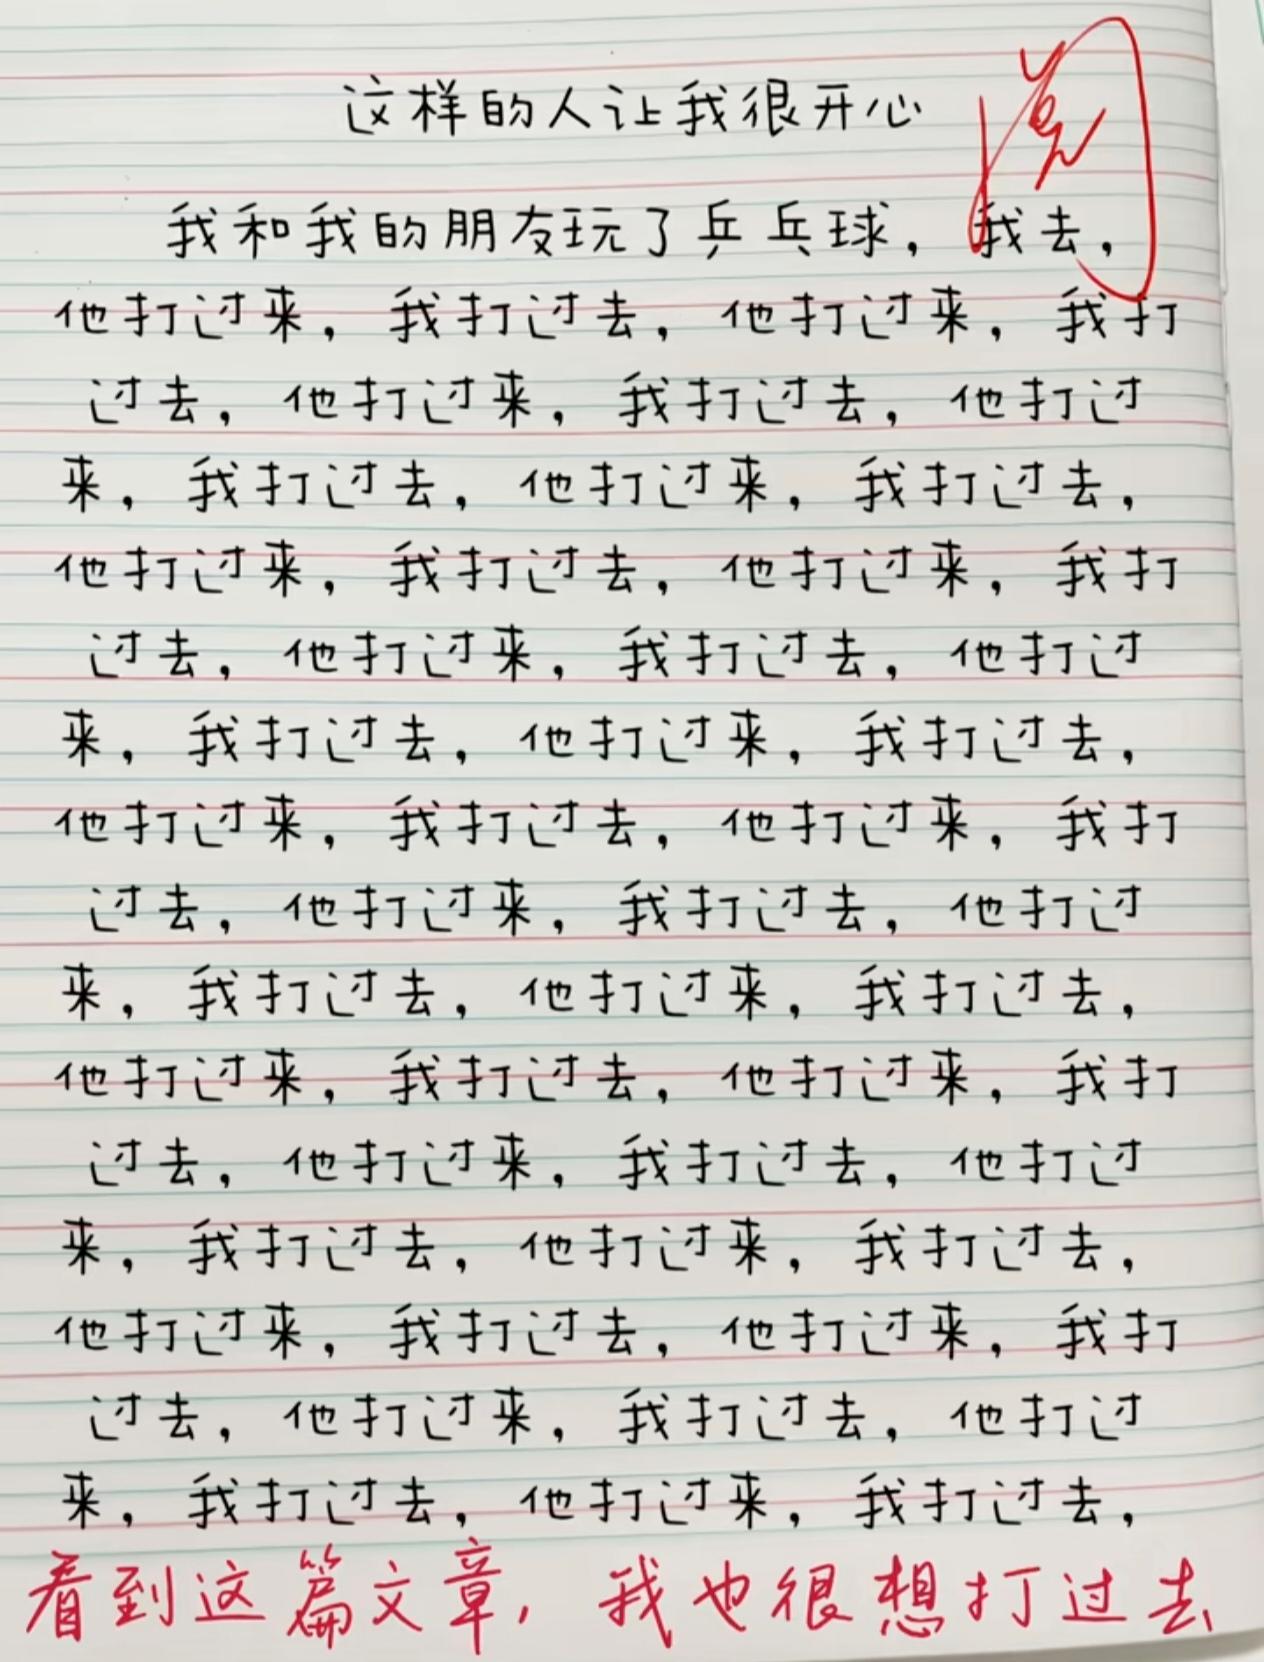 这样的人让我很开心
阅
我和我的朋友玩了乒乓球，我去，
他打过来，我打过去，他打过来，我打
过去，他打过来，我打过去，他打过
来，我打过去，他打过来，我打过去，
他打过来，我打过去，他打过来，我打
过去，他打过来，我打过去，他打过
来，我打过去，他打过来，我打过去，
他打过来，我打过去，他打过来，我打
过去，他打过来，我打过去，他打过
来，我打过去，他打过来，我打过去，
他打过来，我打过去，他打过来，我打
过去，他打过来，我打过去，他打过
来，我打过去，他打过来，我打过去，
他打过来，我打过去，他打过来，我打
过去，他打过来，我打过去，他打过
来，我打过去，他打过来，我打过去，
看到这篇文章，我也很想打过去